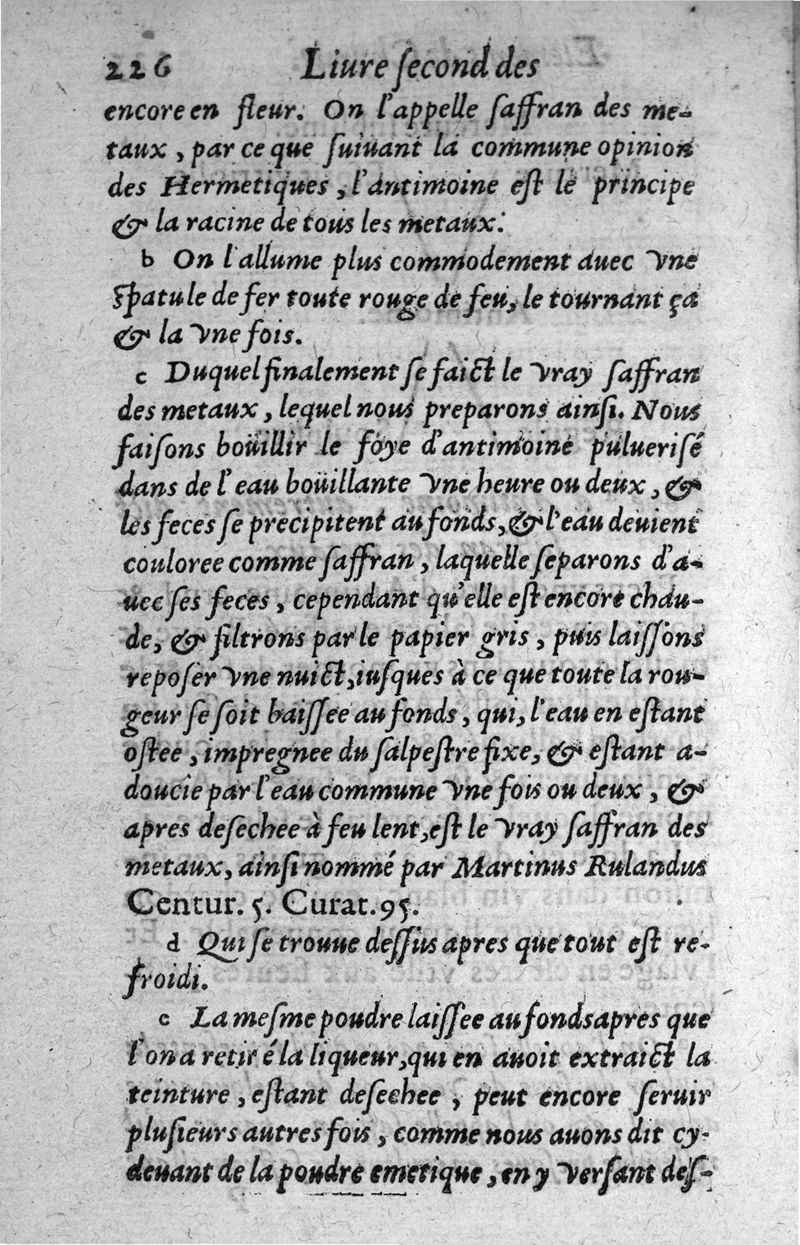 226 Liure ſecond des
encore en fleur. On l'appelle ſaffran des me-
taux, par ce que ſuiuant la commune opinion
des Hermetiques, l'antimoine eſt le principe
& la racine de tous les metaux.
b On l'allume plus commodement auec vne
ſpatule de fer toute rouge de feu, le tournant çà
& la vne fois.
c Duquel finalement ſe faict le vray ſaffran
des metaux, lequel nous preparons ainſi. Nous
faiſons boüillir le foye d'antimoine pulueriſé
dans de l'eau boüillante vne heure ou deux, &
les feces ſe precipitent au fonds, & l'eau deuient
couloree comme ſaffran, laquelle ſeparons d'a-
uec ſes feces, cependant qu'elle eſt encore chau-
de, & filtrons par le papier gris, puis laiſſons
repoſer vne nuict, iuſques à ce que toute la rou-
geur ſe ſoit baiſſee au fonds, qui, l'eau en eſtant
oſtee, impregnee du ſalpeſtre fixe, & eſtant a-
doucie par l'eau commune vne fois ou deux, &
apres deſechee à feu lent, eſt le vray ſaffran des
metaux, ainſi nommé par Martinus Rulandus
Centur. 5. Curat. 95.
d Qui ſe trouue deſſus apres que tout eſt re-
froidi.
e La meſme poudre laiſſee au fonds apres que
l'on a retiré la liqueur, qui en auoit extraict la
teinture, eſtant deſechee, peut encore ſeruir
pluſieurs autres fois, comme nous auons dit cy-
deuant de la poudre emetique, en y verſant deſ-